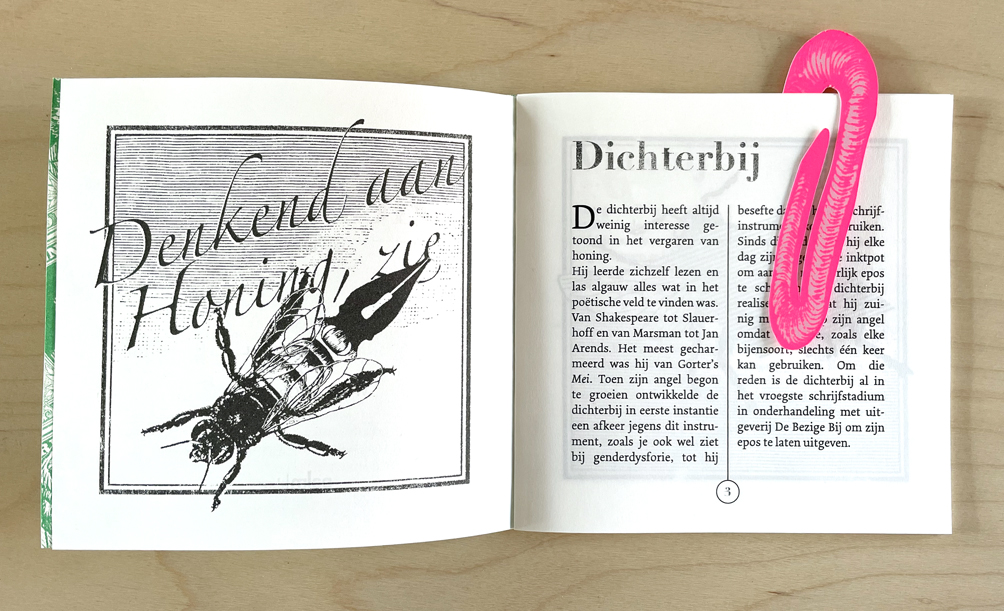 Denkend aan
Honing, zie
Dichterbij
De dichterbij heeft altijd
weinig interesse ge-
toond in het vergaren van
honing.
Hij leerde zichzelf lezen en
las algauw alles wat in het
poëtische veld te vinden was.
Van Shakespeare tot Slauer-
hoff en van Marsman tot Jan
Arends. Het meest gechar-
meerd was hij van Gorter's
Mei. Toen zijn angel begon
te groeien ontwikkelde de
dichterbij in eerste instantie
een afkeer jegens dit instru-
ment, zoals je ook wel ziet
bij genderdysforie, tot hij
besefte
instrum
Sinds hij elke
dag inktpot
om epos
te dichterbij
hij zui-
nig zijn angel
omdat zoals elke
bijensoort, slechts één keer
kan gebruiken. Om die
reden is de dichterbij al in
het vroegste schrijfstadium
in onderhandeling met uit-
geverij De Bezige Bij om zijn
epos te laten uitgeven.
3